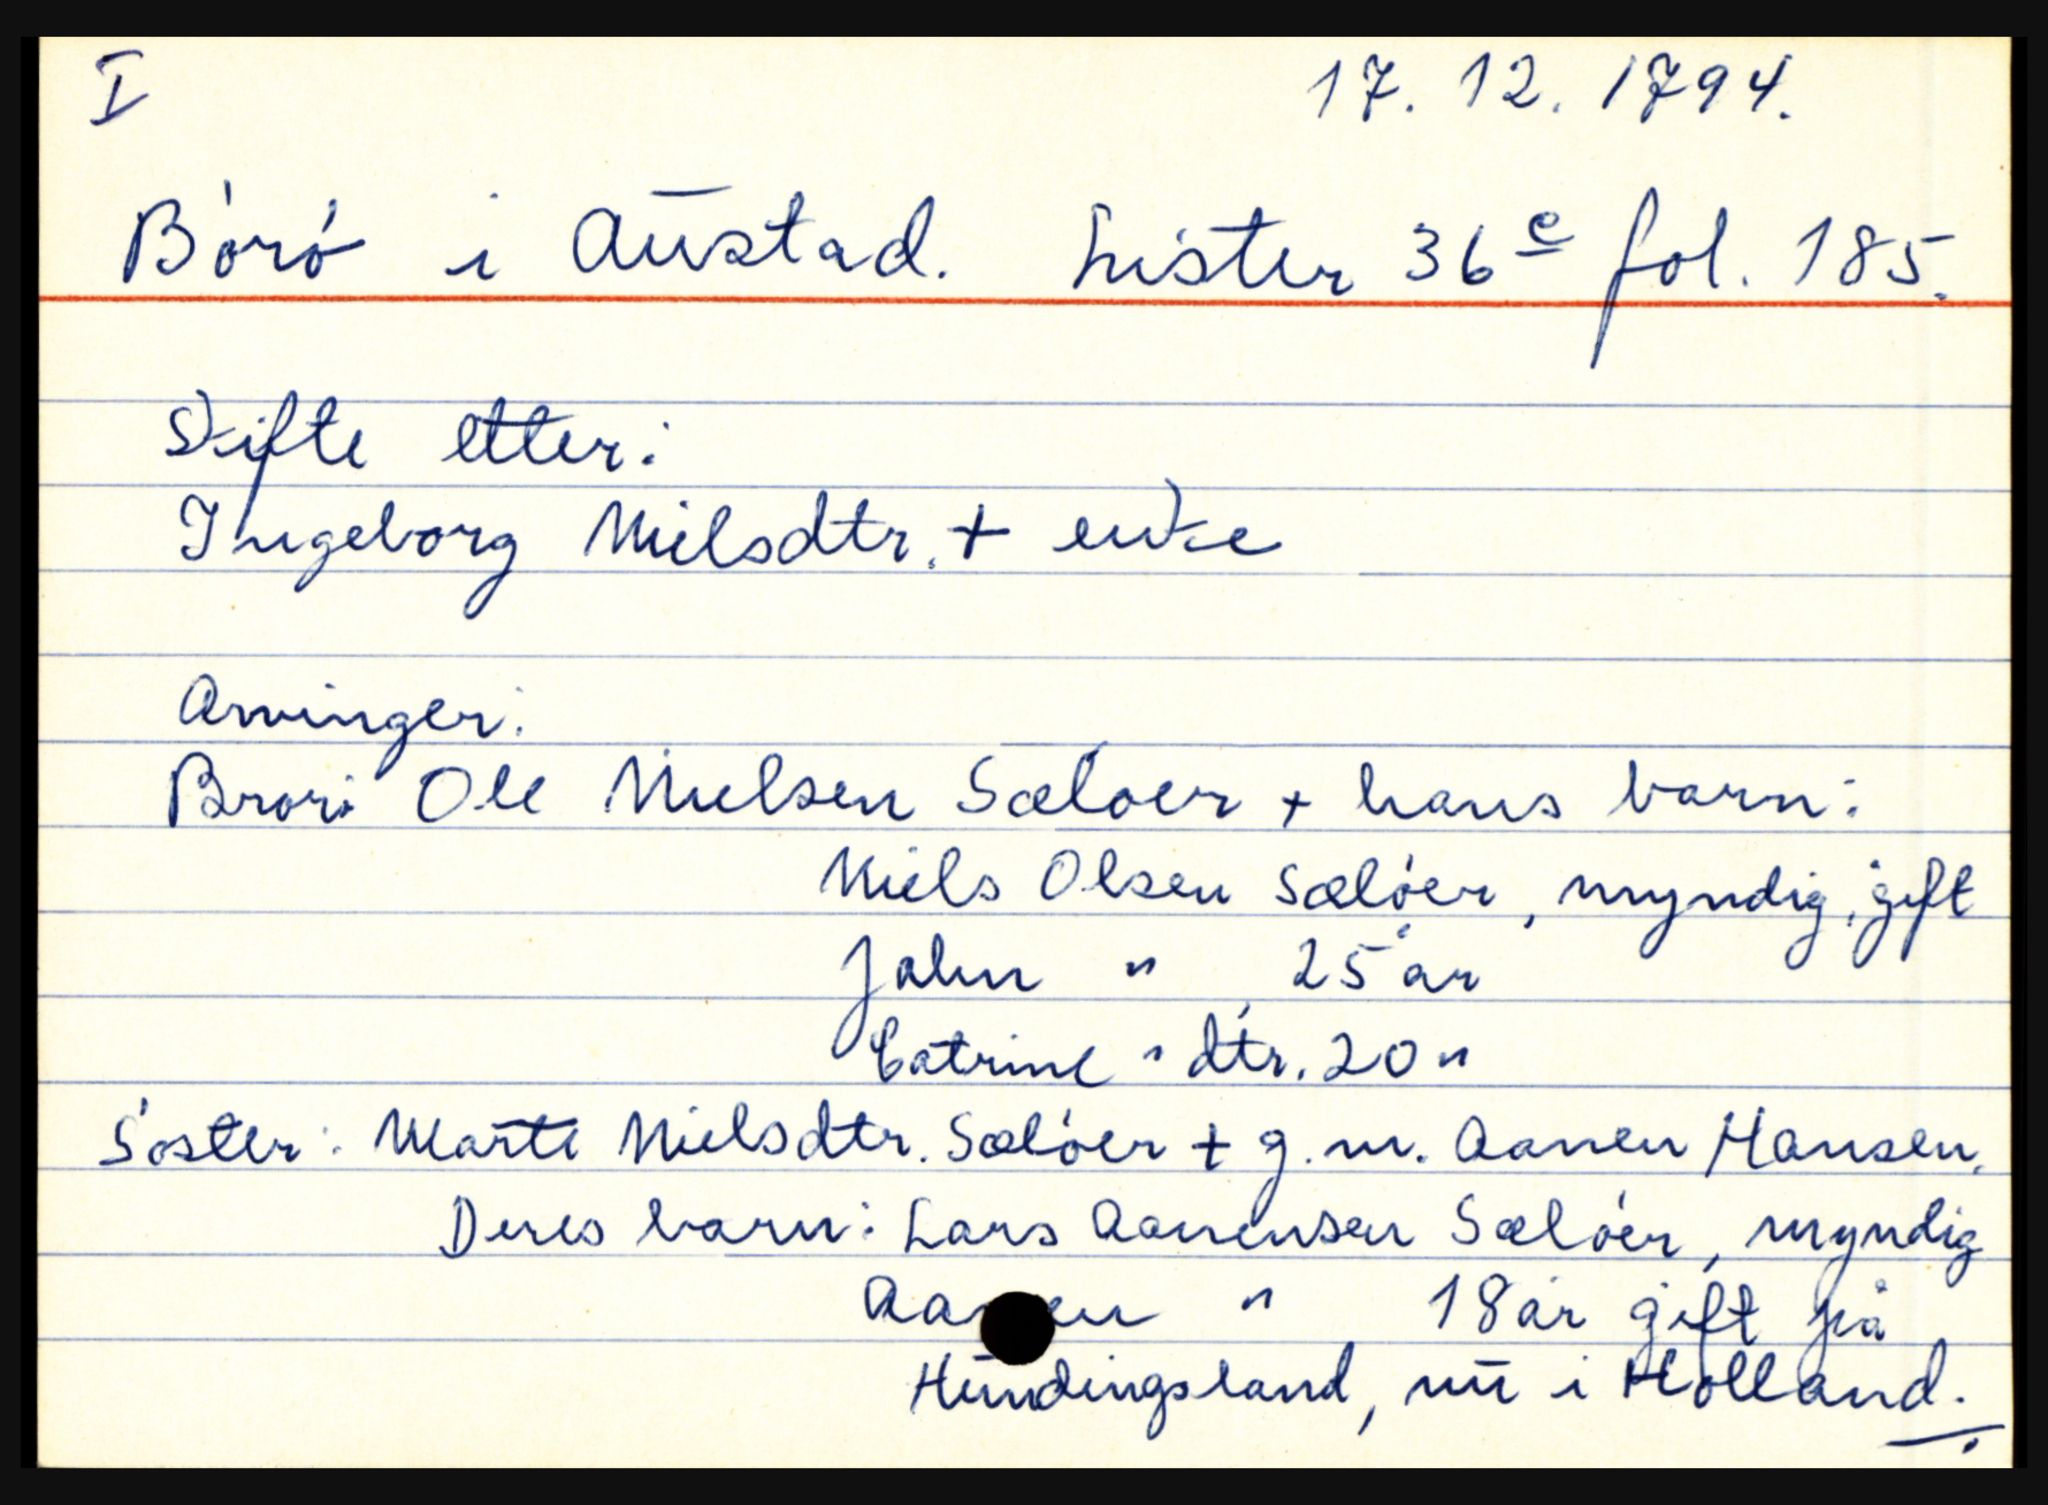 I 17.12.1794.
Børø i Austad. Lister 36e fol. 185.
Skifte etter:
Ingeborg Nielsdtr. + enke
Arvinger:
Bror: Ole Nielsen Sæløer + hans barn:
Niels Olsen Sæløer, myndig, gift
John " 25 år
Catrine " dtr. 20 "
Søster: Marte Nielsdtr. Sæløer + g.m. Aanen Hansen.
Deres barn: Lars Aanensen Sæløer, myndig
Aanen " 18 år gift på
Hundingsland, nu i Holland.